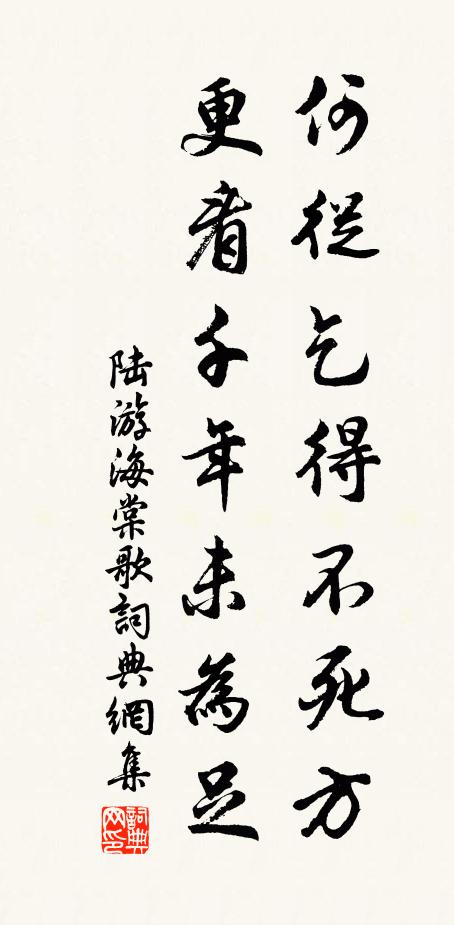 何從乞得不死方
更看千年未為足
陆游海棠歌詞典網集
詞典
网印